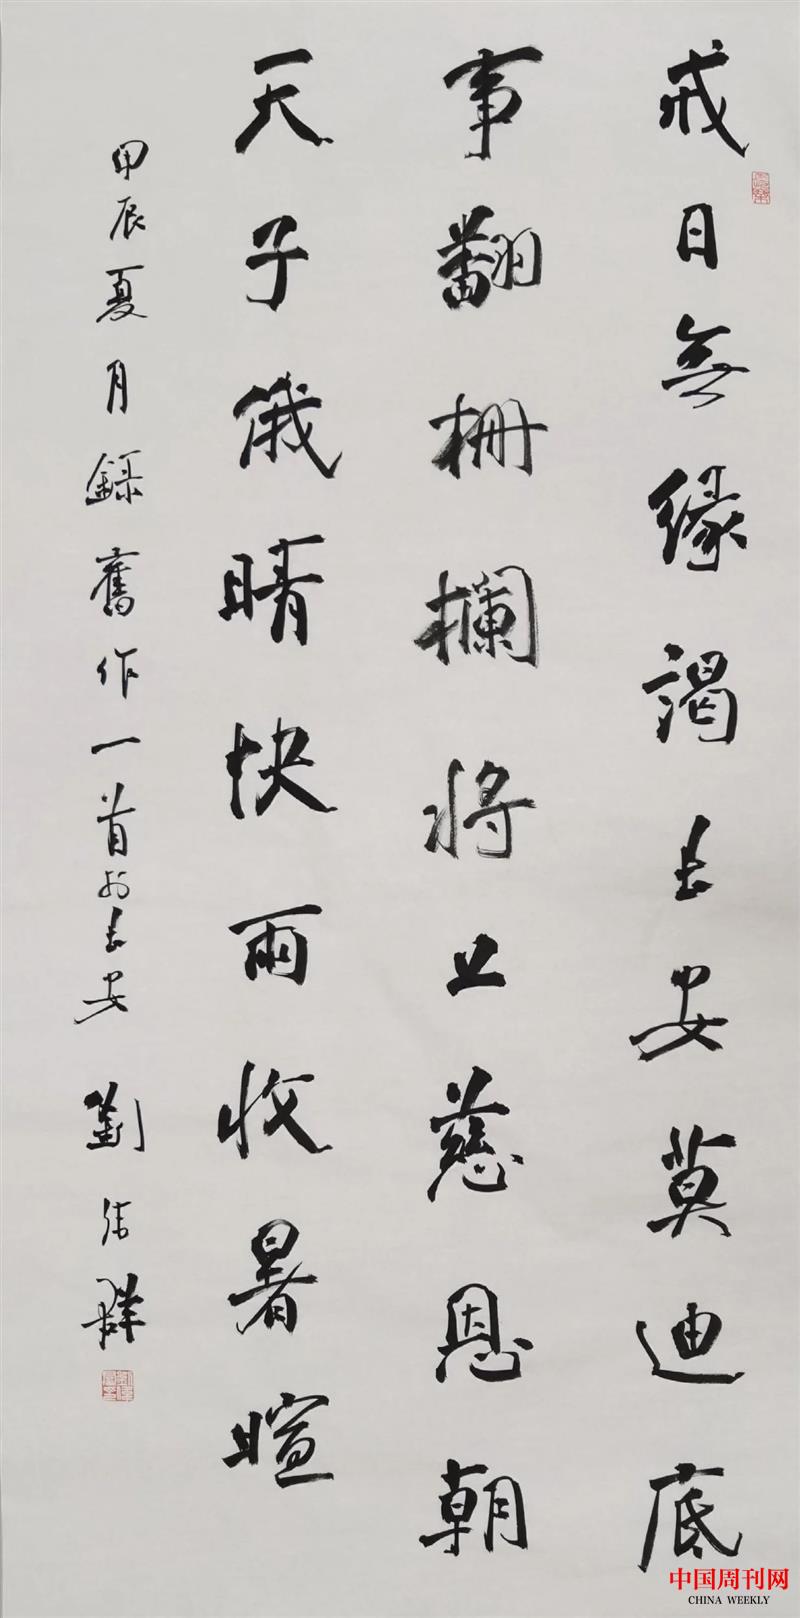 戒日無緣謁長安莫迪底
事翻柵欄將上慈恩朝
天子俄晴快雨收暑暄
甲辰夏月錄舊作一首於長安 劉偉群
中国周刊网
CHINA WEEKLY